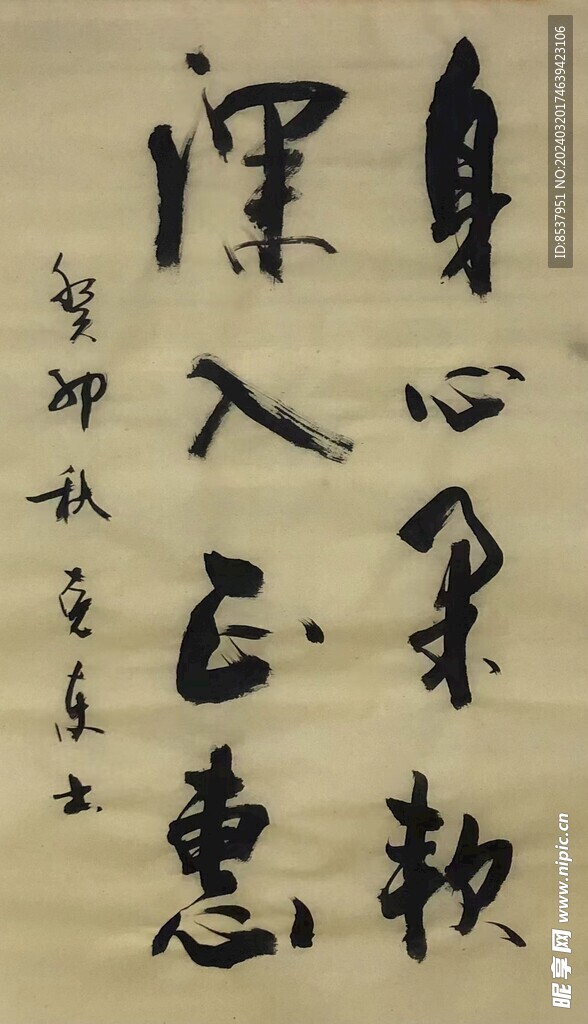 身心柔软
深入正惠
癸卯秋克东书
ID:8537951 NO:20240320174639423106
昵享网 www.nipic.cn